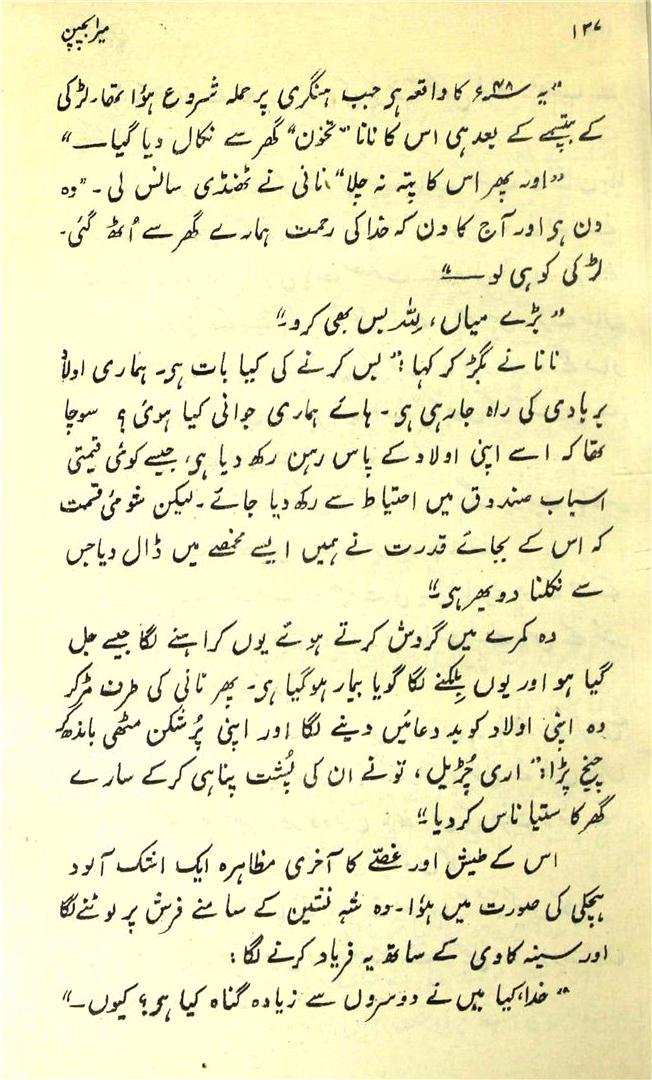 ۱۳۷ میرا بچپن
”یہ ۴۸ء کا واقعہ ہی جب ہنگری پر حملہ شروع ہؤا تھا۔ لڑکی
کے بپتسمے کے بعد ہی اس کا نانا ”تخون“ گھر سے نکال دیا گیا۔۔۔“
”اور پھر اس کا پتہ نہ چلا“، نانی نے ٹھنڈی سانس لی۔ ”وہ
دن ہی اور آج کا دن کہ خدا کی رحمت ہمارے گھر سے اُٹھ گئی۔
لڑکی کو ہی لو۔۔۔“
”بڑے میاں، لِلّٰہ بس بھی کرو۔“
نانا نے بگڑ کر کہا: ”بس کرنے کی کیا بات ہی۔ ہماری اولاد
بربادی کی راہ جارہی ہی۔ ہائے ہماری جوانی کیا ہوئی؟ سوچا
تھا کہ اسے اپنی اولاد کے پاس رہن رکھ دیا ہی، جیسے کوئی قیمتی
اسباب صندوق میں احتیاط سے رکھ دیا جائے۔ لیکن شومئ قسمت
کہ اس کے بجائے قدرت نے ہمیں ایسے مخمصے میں ڈال دیا جس
سے نکلنا دوبھر ہی۔“
وہ کمرے میں گردش کرتے ہوئے یوں کراہنے لگا جیسے جل
گیا ہو اور یوں بِلکنے لگا گویا بیمار ہوگیا ہی۔ پھر نانی کی طرف مڑ کر
وہ اپنی اولاد کو بد دعائیں دینے لگا اور اپنی پُرشکن مٹھی باندھ کر
چیخ پڑا: ”اری چُڑیل، تو نے ان کی پُشت پناہی کرکے سارے
گھر کا ستیا ناس کردیا۔“
اس کے طیش اور غصّے کا آخری مظاہرہ ایک اشک آلود
ہچکی کی صورت میں ہؤا۔ وہ شہ نشین کے سامنے فرش پر لوٹنے لگا
اور سینہ کاوی کے ساتھ یہ فریاد کرنے لگا:
”خدا، کیا میں نے دوسروں سے زیادہ گناہ کیا ہی؟ کیوں۔“